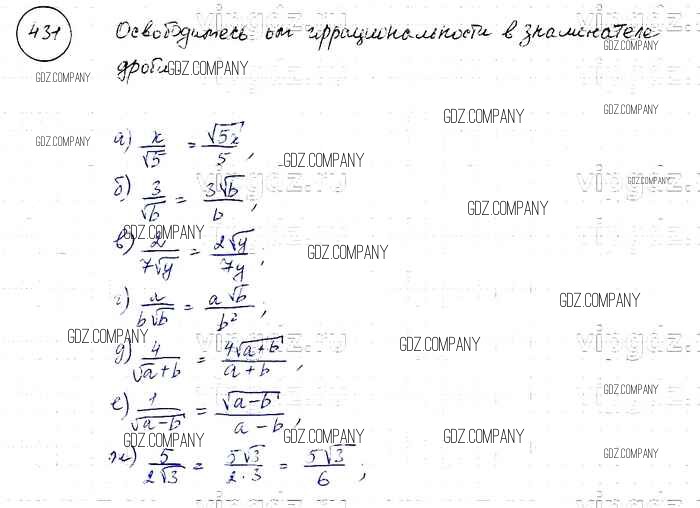 431 Освободитесь от иррациональности в знаменателе
дроби
GDZ.COMPANY GDZ.COMPANY GDZ.COMPANY
GDZ.COMPANY GDZ.COMPANY GDZ.COMPANY
а) x/√5 = √5x/5;
GDZ.COMPANY
б) 3/√b = 3√b/b;
vipgdz.ru GDZ.COMPANY
GDZ.COMPANY
GDZ.COMPANY
в) 2/7√y = 2√y/7y;
GDZ.COMPANY GDZ.COMPANY
г) a/b√b = a√b/b²;
GDZ.COMPANY
GDZ.COMPANY vipgdz.ru GDZ.COMPANY
д) 4/√a+b = 4√a+b/a+b,
GDZ.COMPANY
е) 1/√a-b = √a-b/a-b,
GDZ.COMPANY GDZ.COMPANY GDZ.COMPANY
ж) 5/2√3 = 5√3/2·3 = 5√3/6;
GDZ.COMPANY